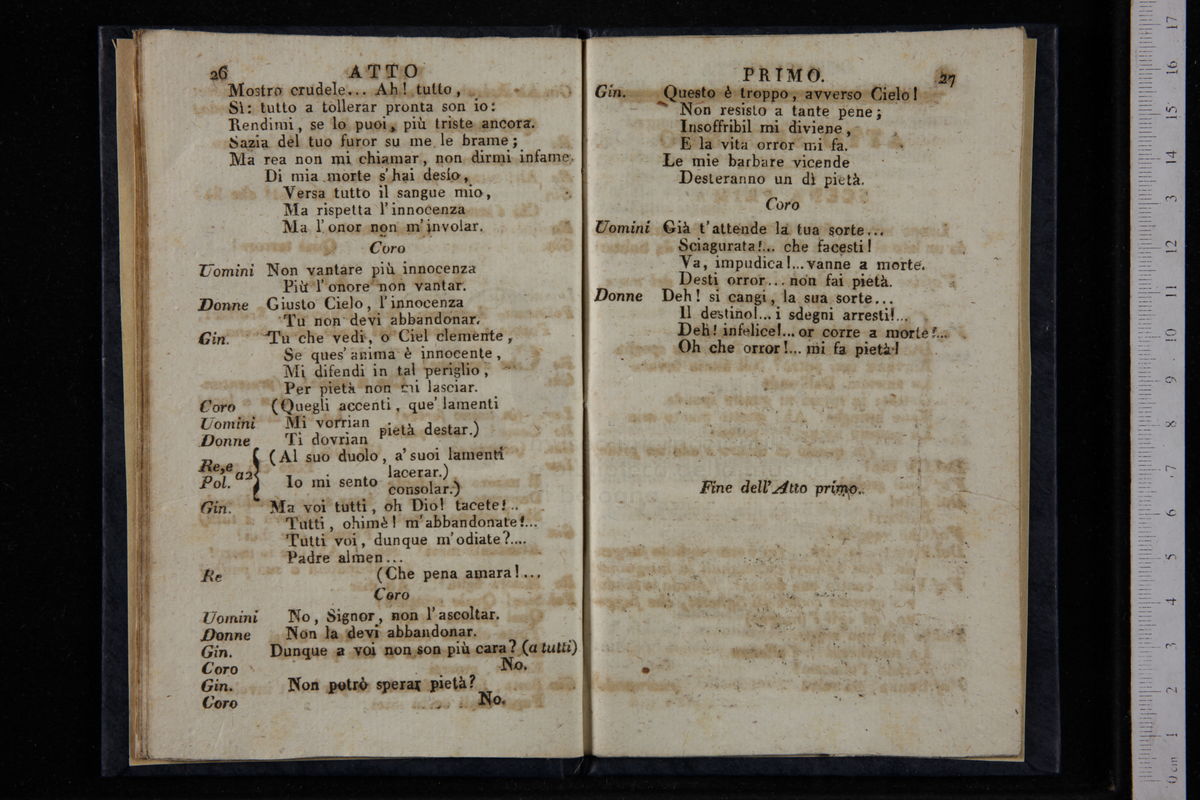 26 ATTO
Mostro crudele... Ah! tutto,
Sì: tutto a tollerar pronta son io:
Rendimi, se lo puoi, più triste ancora.
Sazia del tuo furor su me le brame;
Ma rea non mi chiamar, non dirmi infame.
Di mia morte s'hai desìo,
Versa tutto il sangue mio,
Ma rispetta l'innocenza
Ma l'onor non m'involar.
Coro
Uomini Non vantare più innocenza
Più l'onore non vantar.
Donne Giusto Cielo, l'innocenza
Tu non devi abbandonar.
Gin. Tu che vedi, o Ciel clemente,
Se ques'anima è innocente,
Mi difendi in tal periglio,
Per pietà non mi lasciar.
Coro (Quegli accenti, que' lamenti
Uomini Mi vorrian
Donne Ti dovrian pietà destar.)
Re, e Pol. a2 { (Al suo duolo, a' suoi lamenti
Io mi sento lacerar.)
consolar.)
Gin. Ma voi tutti, oh Dio! tacete!..
Tutti, ohimè! m'abbandonate!...
Tutti voi, dunque m'odiate?....
Padre almen...
Re (Che pena amara!...
Coro
Uomini No, Signor, non l'ascoltar.
Donne Non la devi abbandonar.
Gin. Dunque a voi non son più cara? (a tutti)
Coro No.
Gin. Non potrò sperar pietà?
Coro No.
PRIMO. 27
Gin. Questo è troppo, avverso Cielo!
Non resisto a tante pene;
Insoffribil mi diviene,
E la vita orror mi fa.
Le mie barbare vicende
Desteranno un dì pietà.
Coro
Uomini Già t'attende la tua sorte...
Sciagurata!... che facesti!
Va, impudica!... vanne a morte.
Desti orror... non fai pietà.
Donne Deh! si cangi, la sua sorte...
Il destino!... i sdegni arresti!...
Deh! infelice!... or corre a morte!...
Oh che orror!... mi fa pietà!
Fine dell'Atto primo.
0 cm 1 2 3 4 5 6 7 8 9 10 11 12 13 14 15 16 17